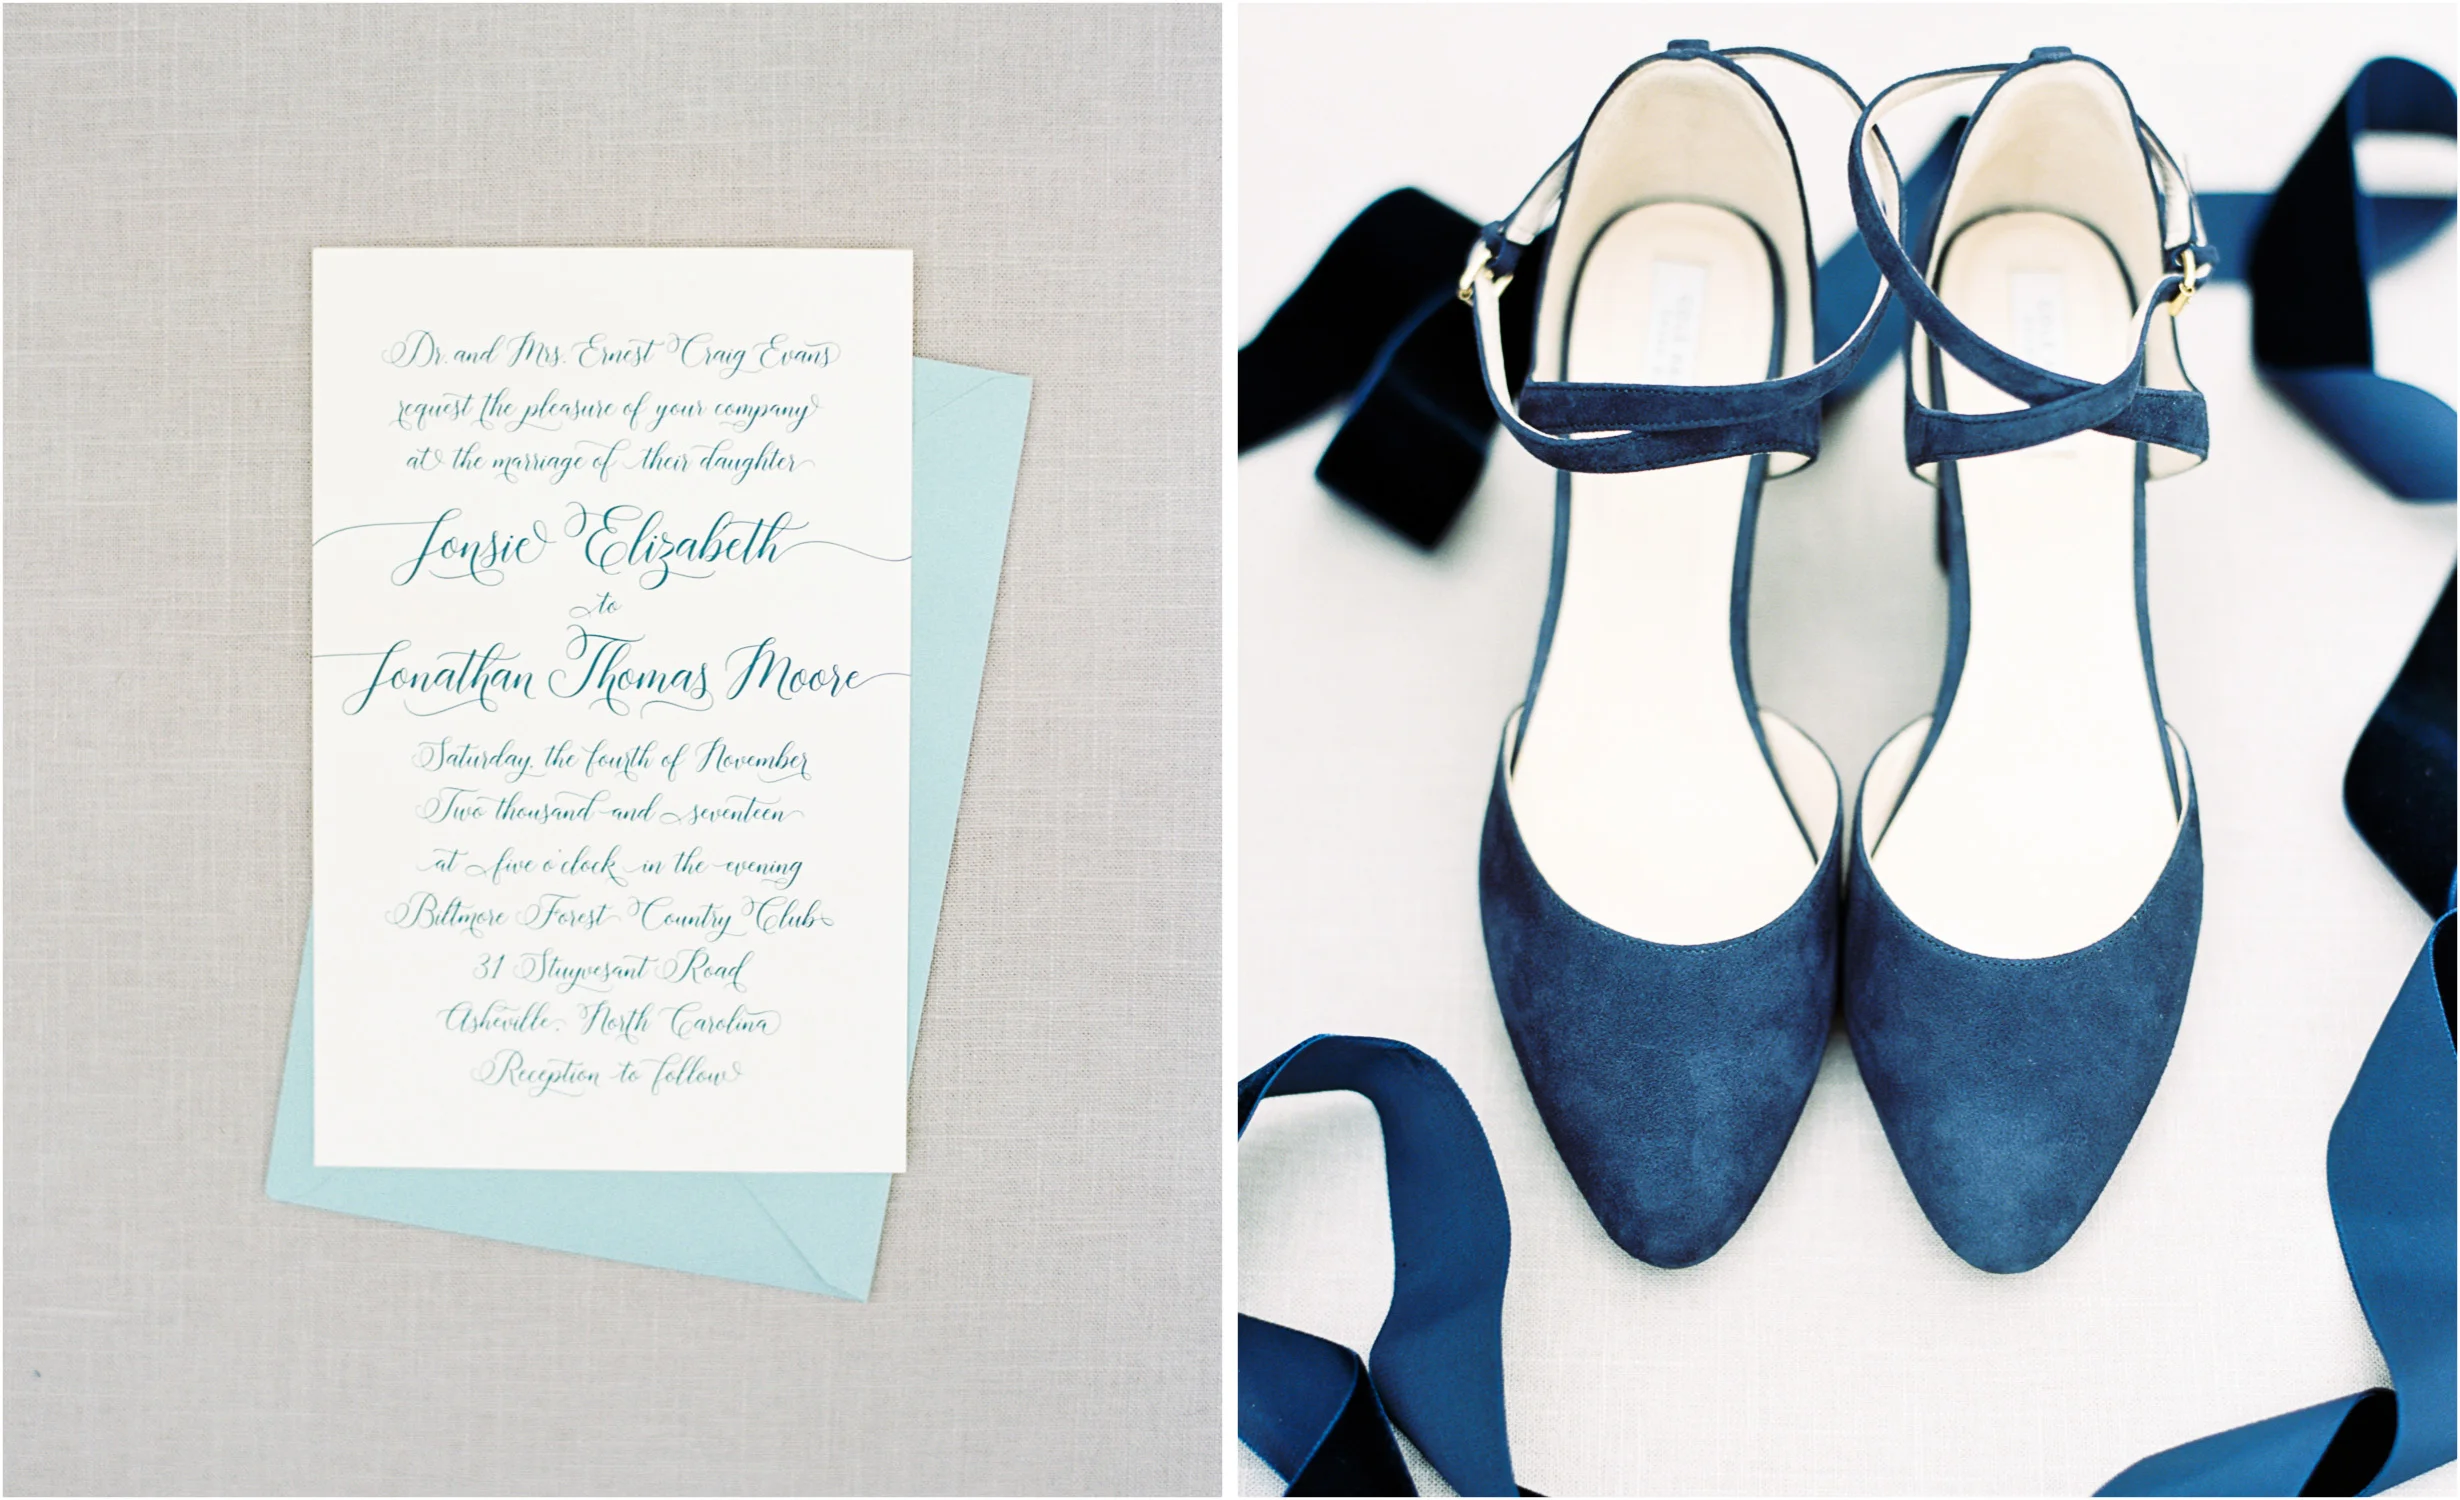 Dr. and Mrs. Ernest Craig Evans
request the pleasure of your company
at the marriage of their daughter
Jonsie Elizabeth
to
Jonathan Thomas Moore
Saturday, the fourth of November
Two thousand and seventeen
at five o'clock in the evening
Biltmore Forest Country Club
31 Stuyvesant Road
Asheville, North Carolina
Reception to follow